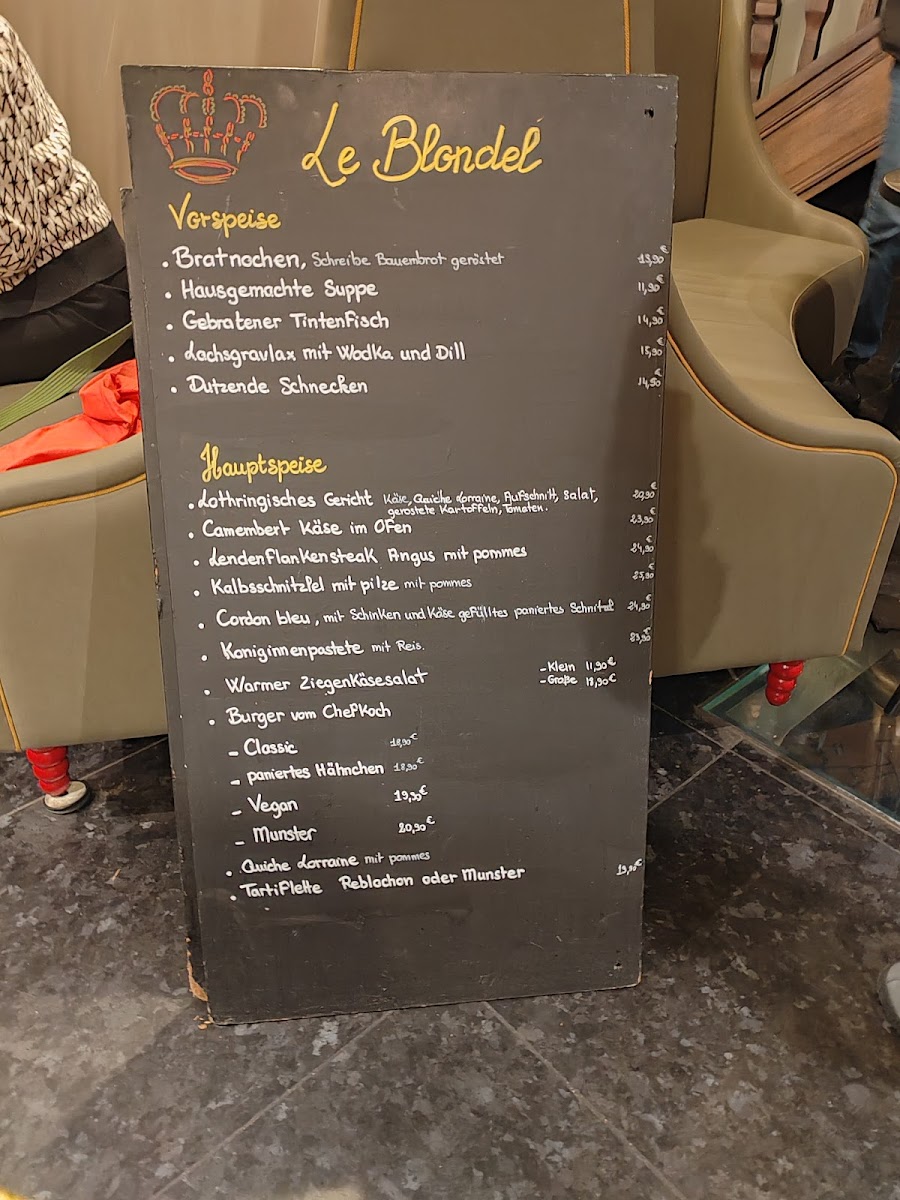 Le Blondel
Vorspeise
. Bratnochen, Schreibe Bauernbrot geröstet 13,90€
. Hausgemachte Suppe 11,90€
. Gebratener TintenFisch 14,90€
. Lachsgravlax mit Wodka und Dill 15,90€
. Dutzende Schnecken 14,50€
Hauptspeise
. Lothringisches Gericht Käse, Quiche Lorraine, Aufschnitt, Salat, 20,90€
geröstete Kartoffeln, Tomaten.
. Camembert Käse im OFen 23,90€
. LendenFlankensteak Angus mit pommes 24,90€
. Kalbsschnitzfel mit pilze mit pommes 25,90€
. Cordon bleu, mit Schinken und Käse gefülltes paniertes Schnitzel 24,90€
. Koniginnenpastete mit Reis. 23,90€
. Warmer ZiegenKäsesalat -Klein 11,90€
-Große 18,90€
. Burger vom ChefKoch
- Classic 18,90€
- paniertes Hähnchen 18,90€
- Vegan 19,90€
- Munster 20,90€
. Quiche Lorraine mit pommes
. TartiFlette Reblochon oder Munster 19,90€